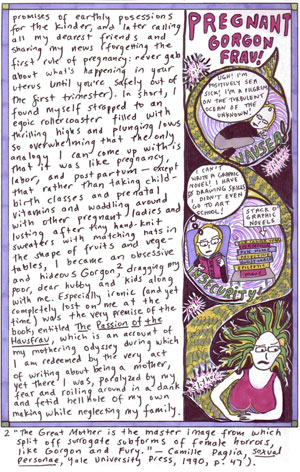 promises of earthly posessions
for the Kinder, and later calling
all my dearest friends and
sharing my news (forgetting the
first rule of pregnancy: never gab
about what's happening in your
uterus until you're safely out of
the first trimester). In short, I
found myself strapped to an
egoic rollercoaster filled with
thrilling highs and plunging lows
so overwhelming that the only
analogy I can come up with is
that it was like pregnancy,
labor, and postpartum — except
that rather than taking child-
birth classes and prenatal
vitamins and waddling around
with other pregnant ladies and
lusting after tiny hand-knit
sweaters with matching hats in
the shape of fruits and vege-
tables, I became an obsessive
and hideous Gorgon,2 dragging my
poor, dear hubby and kids along
with me. Especially ironic (and yet
completely lost on me at the
time) was the very premise of the
book, entitled The Passion of the
Hausfrau, which is an account of
my mothering odyssey during which
I am redeemed by the very act
of writing about being a mother,
yet there I was, paralyzed by my
fear and roiling around in a dank
and fetid hell hole of my own
making while neglecting my family.
2 "The Great Mother is the master image from which
split off surrogate subforms of female horrors,
like Gorgon and Fury." — Camille Paglia, Sexual
Personae, Yale University Press, 1990, p. 47).
PREGNANT
GORGON
FRAU!
UGH! I'M
POSITIVELY SEA
SICK! I'M A PILGRIM
ON THE TURBULENT
OCEAN OF THE
UNKNOWN!
NAUSEA!
I CAN'T
WRITE A GRAPHIC
NOVEL! I HAVE
NO DRAWING SKILLS!
I DIDN'T EVEN
GO TO ART
SCHOOL!
STACK O'
GRAPHIC
NOVELS
INSECURITY!